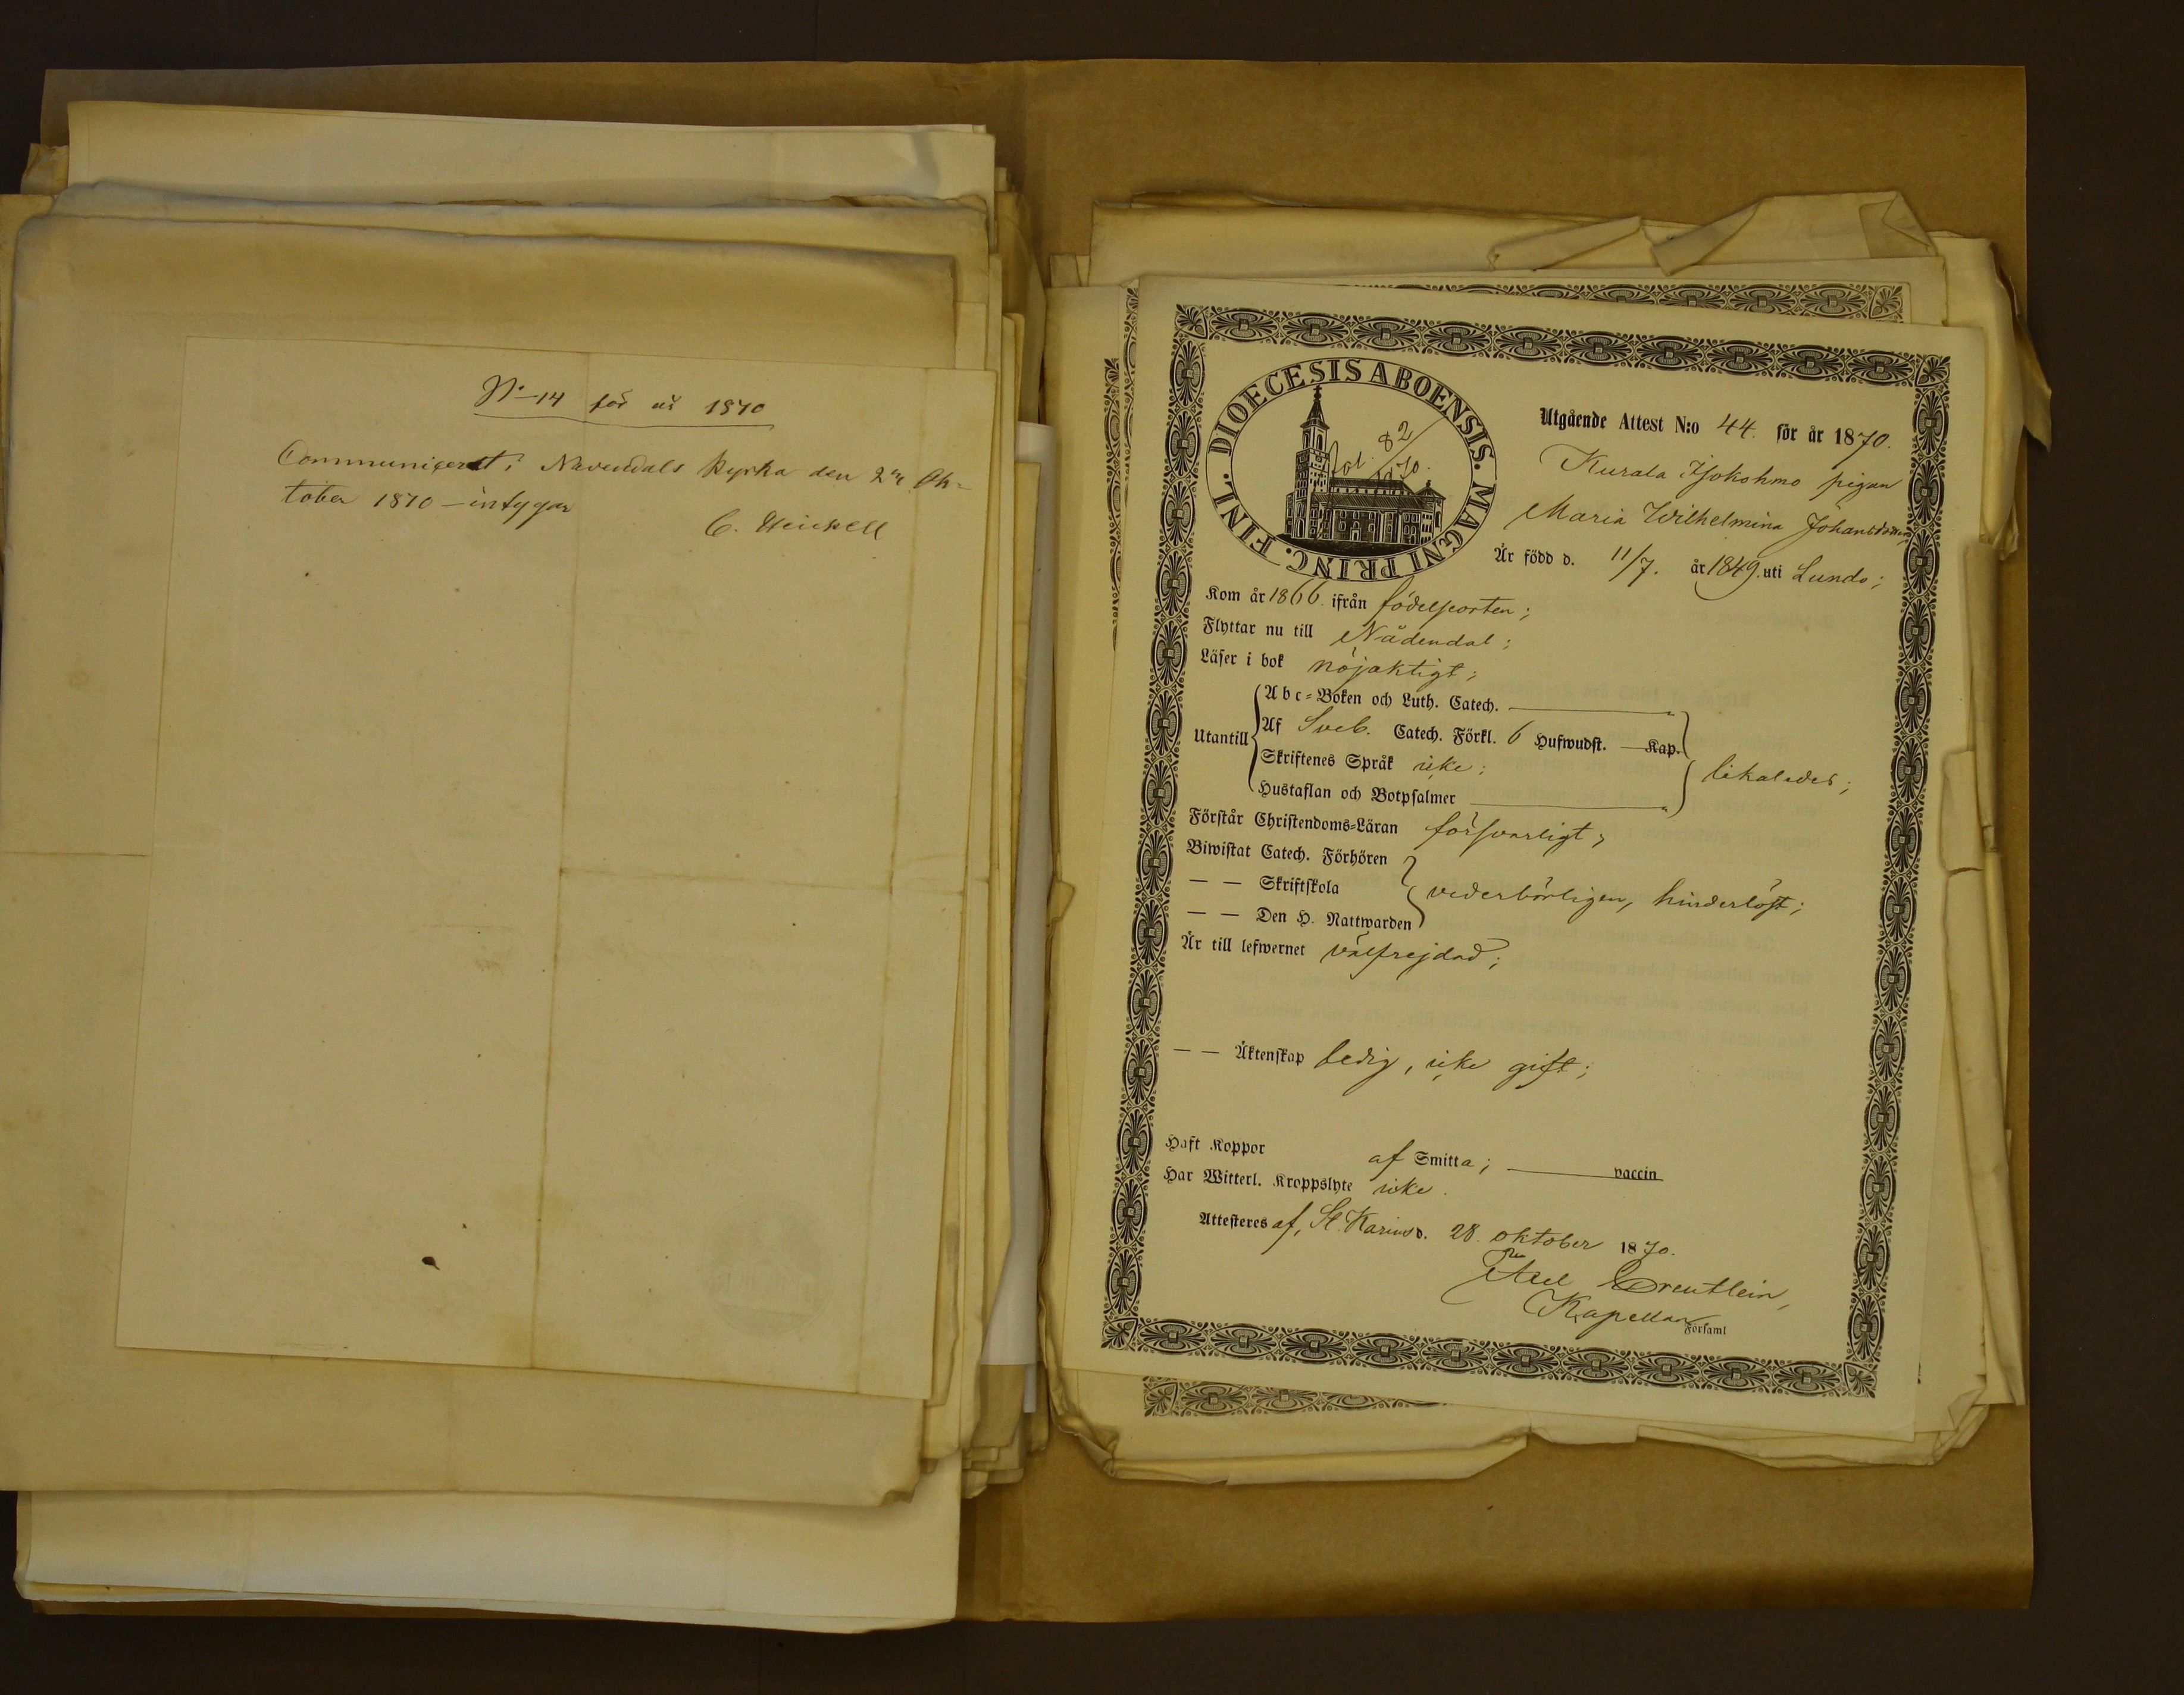 No 14 för år 1870
Communicerat i Nådendals Kyrka den 2 Ok-
tober 1870 – intygar
C. Heickell
DIOECESIS ABOENSIS. MAGNI PRINC. FINL.
fol. 82
1870.
Utgående Attest N:o 44. för år 1870.
Kurala Isokohmo pigan
Maria Wilhelmina Johansdotter
Är född d. 11/7. år 1849. uti Lundo;
Kom år 1866. ifrån födelseorten;
Flyttar nu till Nådendal;
Läser i bok nöjaktigt;
Utantill
Abc-Boken och Luth. Catech.
Af Sveb. Catech. Förkl. 6 Hufwudst. — Kap.
Skriftenes Språk icke;
Hustaflan och Botpsalmer
likaledes;
Förstår Christendoms-Läran försvarligt;
Biwistat Catech. Förhören
— — Skriftskola
— — Den H. Nattwarden
vederbörligen, hinderlöst;
Är till lefwernet välfrejdad;
— — Äktenskap ledig, icke gift;
Haft Koppor af Smitta; — vaccin
Har Witterl. Kroppslyte icke.
Attesteres af, St. Karins d. 28. oktober 1870.
Axel Creutlein,
Kapellan
Församl